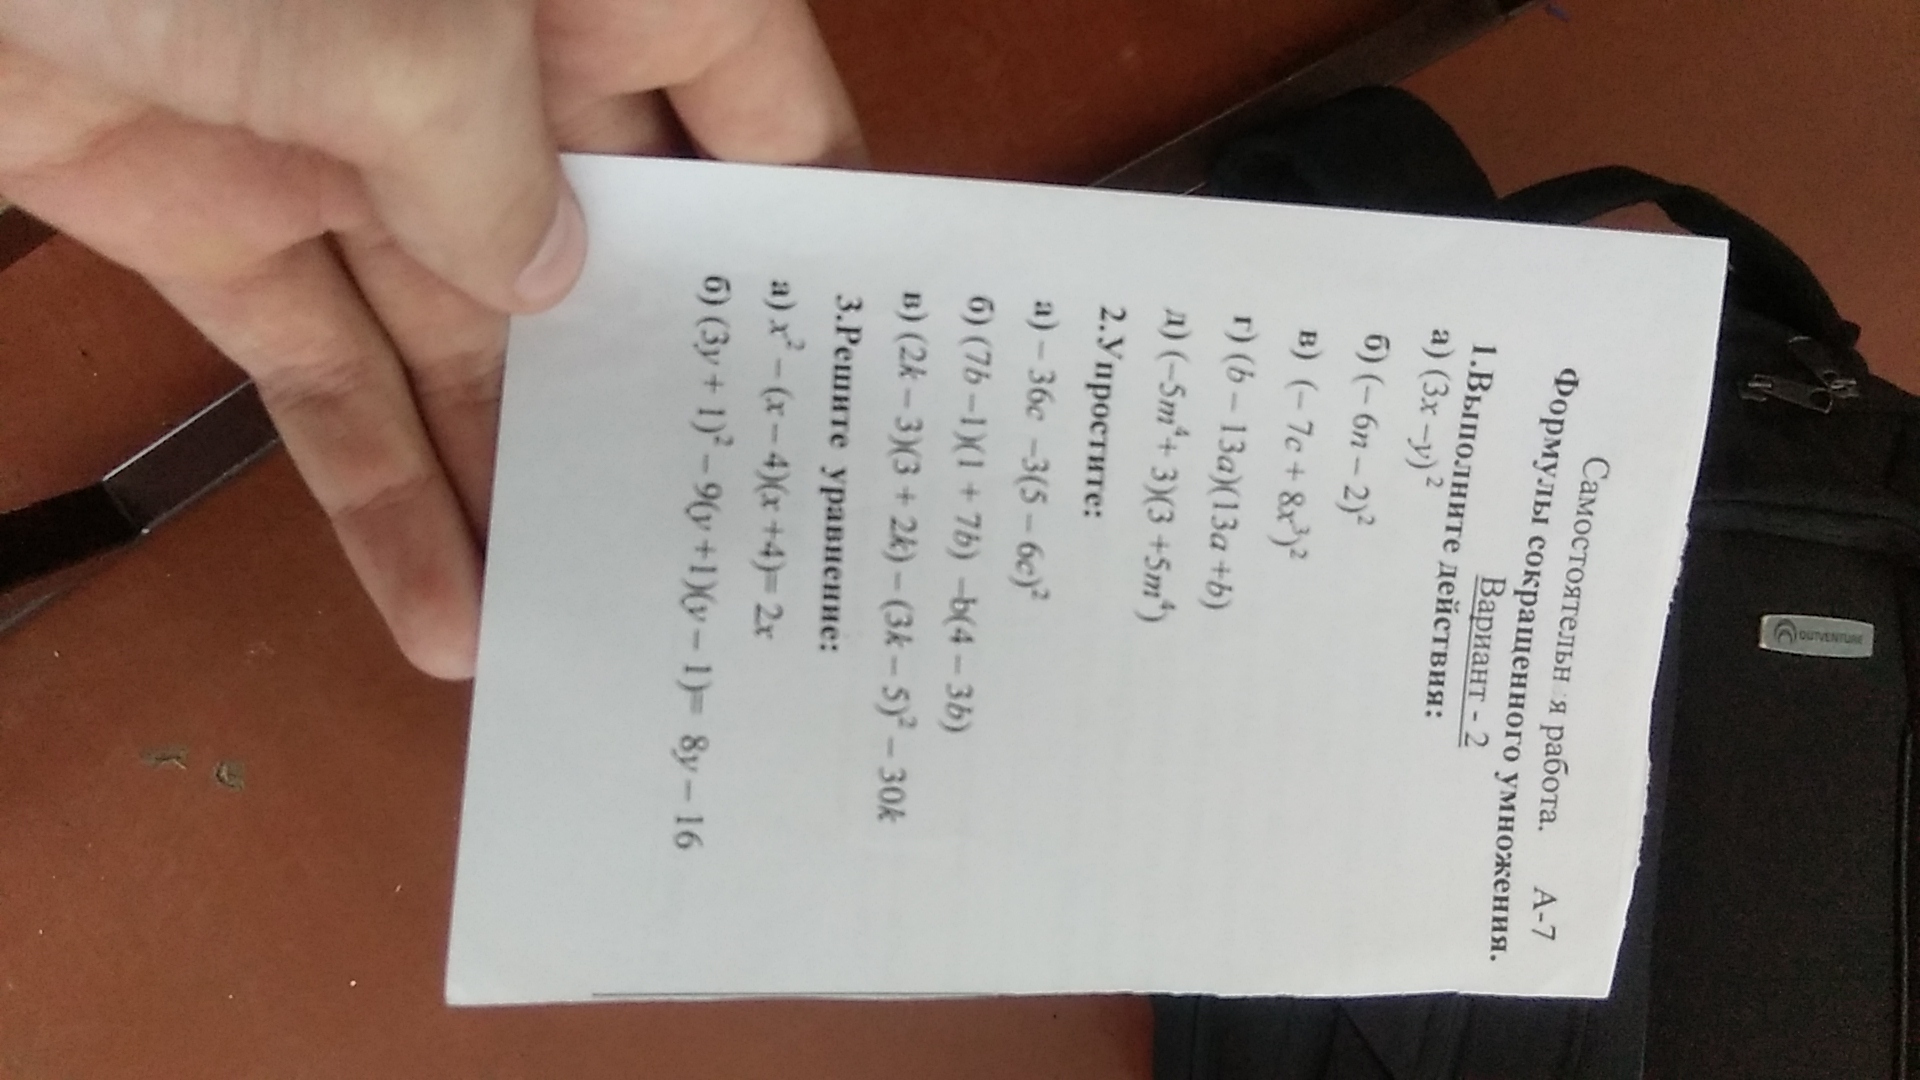 Самостоятельн я работа. А-7
Формулы сокращенного умножения.
Вариант - 2
1.Выполните действия:
а) (3x –y)²
б) (– 6n – 2)²
в) (– 7c + 8x³)²
г) (b – 13a)(13a +b)
д) (–5m⁴+ 3)(3 +5m⁴)
2.Упростите:
а) – 36c –3(5 – 6c)²
б) (7b –1)(1 + 7b) –b(4 – 3b)
в) (2k – 3)(3 + 2k) – (3k – 5)² – 30k
3.Решите уравнение:
а) x² – (x – 4)(x +4)= 2x
б) (3y + 1)² – 9(y +1)(y – 1)= 8y – 16
OUTVENTURE